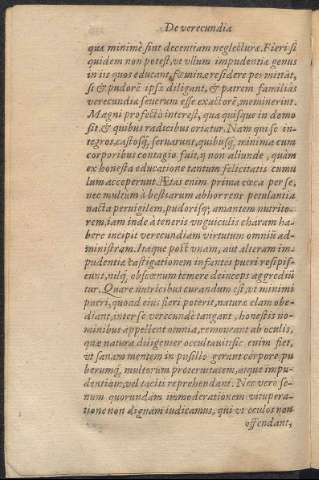 De verecundia
quæ minimè sint decentiam neglecturæ. Fieri si
quidem non potest, ut ullum impudentia genus
in iis quos educant, fœminæ residere permittãt,
si & pudorẽ ipsæ diligant, & patrem familiâs
verecundiæ seuerum esse exactorẽ, meminerint.
Magni profectò interest, qua quisque in domo
sit, & quibus radicibus oriatur. Nam qui se in-
tegros, castosq́; seruarunt, quibusq́; minima cum
corporibus contagio fuit, ij non aliunde, quàm
ex honesta educatione tantum felicitatis cumu
lum acceperunt. Ætas enim prima cæca per se,
nec multùm à bestiarum abhorrens petulantia
nacta peruigilem, pudorisq́; amantem nutrito-
rem, iam inde à teneris vnguiculis charam ha-
bere incipit verecundiam virtutum omniũ ad-
ministram. Itaque post vnam, aut alteram im-
pudentiæ castigationem infantes pueri resipis-
cunt, nilq́; obscœnum temere deinceps aggrediũ
tur. Quare nutricibus curandum est, vt minimi
pueri, quoad eius fieri poterit, naturæ clam obe-
diant, inter se verecundè tangant, honestis no-
minibus appellent omnia, remoueant ab oculis,
quæ natura diligenter occultauit: sic enim fiet,
vt sanam mentem in pusillo gerant corpore pu
berumq́; multorum proteruitatem, atque impu-
dentiam, vel taciti reprehendant. Nec verò se-
num quorundam immoderationem vitupera-
tione non dignam iudicamus, qui vt oculos non
offendant,